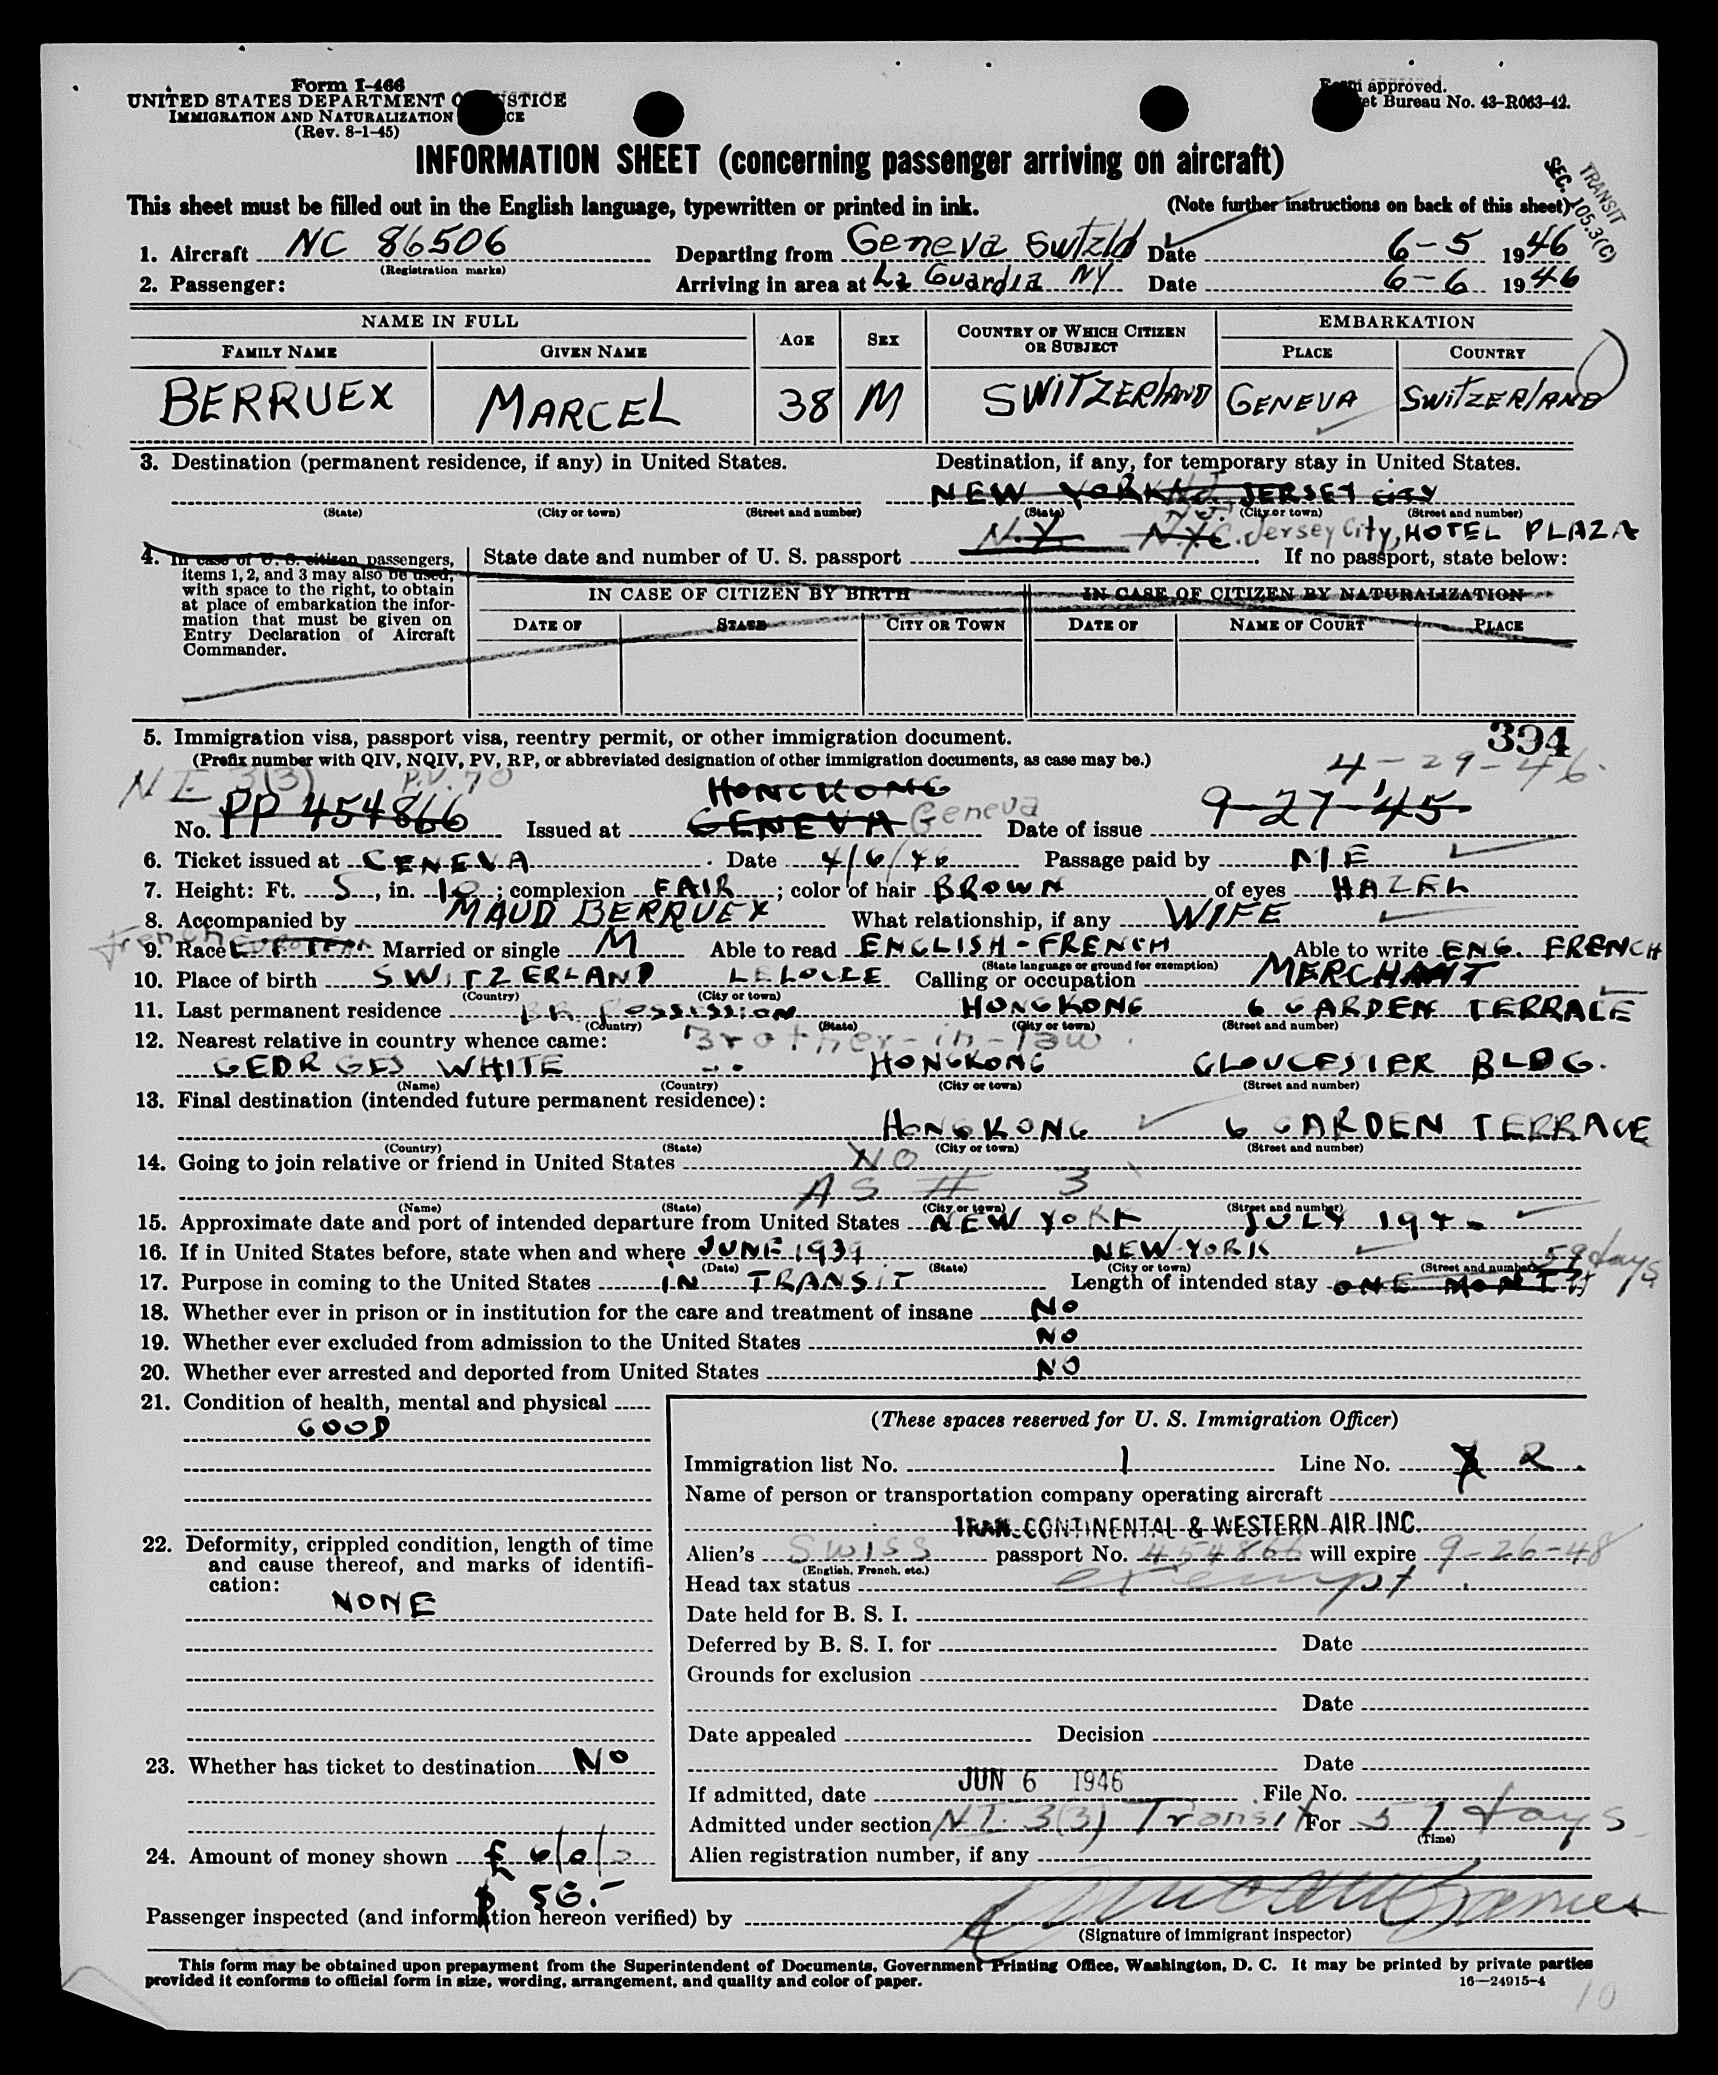 Form I-466
UNITED STATES DEPARTMENT OF JUSTICE
IMMIGRATION AND NATURALIZATION SERVICE
(Rev. 8-1-45)
Form approved.
Budget Bureau No. 43-R063-42.
INFORMATION SHEET (concerning passenger arriving on aircraft)
TRANSIT
SEC. 105.3(C)
This sheet must be filled out in the English language, typewritten or printed in ink. (Note further instructions on back of this sheet)
1. Aircraft NC 86506 Departing from Geneva Switzld Date 6-5 1946
(Registration marks)
2. Passenger: Arriving in area at La Guardia NY Date 6-6 1946
NAME IN FULL AGE SEX COUNTRY OF WHICH CITIZEN OR SUBJECT EMBARKATION
FAMILY NAME GIVEN NAME PLACE COUNTRY
BERRUEX MARCEL 38 M SWITZERLAND GENEVA SWITZERLAND
3. Destination (permanent residence, if any) in United States. Destination, if any, for temporary stay in United States.
NEW YORK N.J. JERSEY CITY
(State) (City or town) (Street and number) (State) (City or town) (Street and number)
N.Y. N.Y.C. N.J. Jersey City, HOTEL PLAZA
4. In case of U. S. citizen passengers, items 1, 2, and 3 may also be used, with space to the right, to obtain at place of embarkation the information that must be given on Entry Declaration of Aircraft Commander.
State date and number of U. S. passport If no passport, state below:
IN CASE OF CITIZEN BY BIRTH IN CASE OF CITIZEN BY NATURALIZATION
DATE OF STATE CITY OR TOWN DATE OF NAME OF COURT PLACE
5. Immigration visa, passport visa, reentry permit, or other immigration document. 394
(Prefix number with QIV, NQIV, PV, RP, or abbreviated designation of other immigration documents, as case may be.) 4-29-46.
N I 3(3) P.V. 70 HONGKONG
No. PP 454866 Issued at GENEVA Geneva Date of issue 9-27-'45
6. Ticket issued at GENEVA Date 4/6/46 Passage paid by ME
7. Height: Ft. 5, in. 10; complexion FAIR; color of hair BROWN of eyes HAZEL
8. Accompanied by MAUD BERRUEX What relationship, if any WIFE
French
9. Race EUROPEAN Married or single M Able to read ENGLISH-FRENCH Able to write ENG. FRENCH
(State language or ground for exemption)
10. Place of birth SWITZERLAND LE LOCLE Calling or occupation MERCHANT
(Country) (City or town)
11. Last permanent residence BR. POSSISSION HONGKONG 6 GARDEN TERRACE
(Country) (State) (City or town) (Street and number)
12. Nearest relative in country whence came: Brother-in-law.
GEORGES WHITE HONGKONG GLOUCESTER BLDG.
(Name) (Country) (City or town) (Street and number)
13. Final destination (intended future permanent residence):
HONGKONG 6 GARDEN TERRACE
(Country) (State) (City or town) (Street and number)
14. Going to join relative or friend in United States NO
AS # 3
(Name) (State) (City or town) (Street and number)
15. Approximate date and port of intended departure from United States NEW YORK JULY 1946
16. If in United States before, state when and where JUNE 1939 NEW-YORK
(Date) (State) (City or town) (Street and number) 59 days
17. Purpose in coming to the United States IN TRANSIT Length of intended stay ONE MONTH
18. Whether ever in prison or in institution for the care and treatment of insane NO
19. Whether ever excluded from admission to the United States NO
20. Whether ever arrested and deported from United States NO
21. Condition of health, mental and physical
GOOD
22. Deformity, crippled condition, length of time and cause thereof, and marks of identification:
NONE
23. Whether has ticket to destination NO
24. Amount of money shown £ 6/0/0
$ 56.-
(These spaces reserved for U. S. Immigration Officer)
Immigration list No. 1 Line No. 2.
Name of person or transportation company operating aircraft
TRAN. CONTINENTAL & WESTERN AIR INC.
Alien's Swiss passport No. 454866 will expire 9-26-48
(English, French, etc.)
Head tax status exempt.
Date held for B. S. I.
Deferred by B. S. I. for Date
Grounds for exclusion
Date
Date appealed Decision
Date
If admitted, date JUN 6 1946 File No.
Admitted under section N.I. 3(3) Transit For 59 days
(Time)
Alien registration number, if any
Passenger inspected (and information hereon verified) by
(Signature of immigrant inspector)
This form may be obtained upon prepayment from the Superintendent of Documents, Government Printing Office, Washington, D. C. It may be printed by private parties
provided it conforms to official form in size, wording, arrangement, and quality and color of paper. 16—24915-4
10